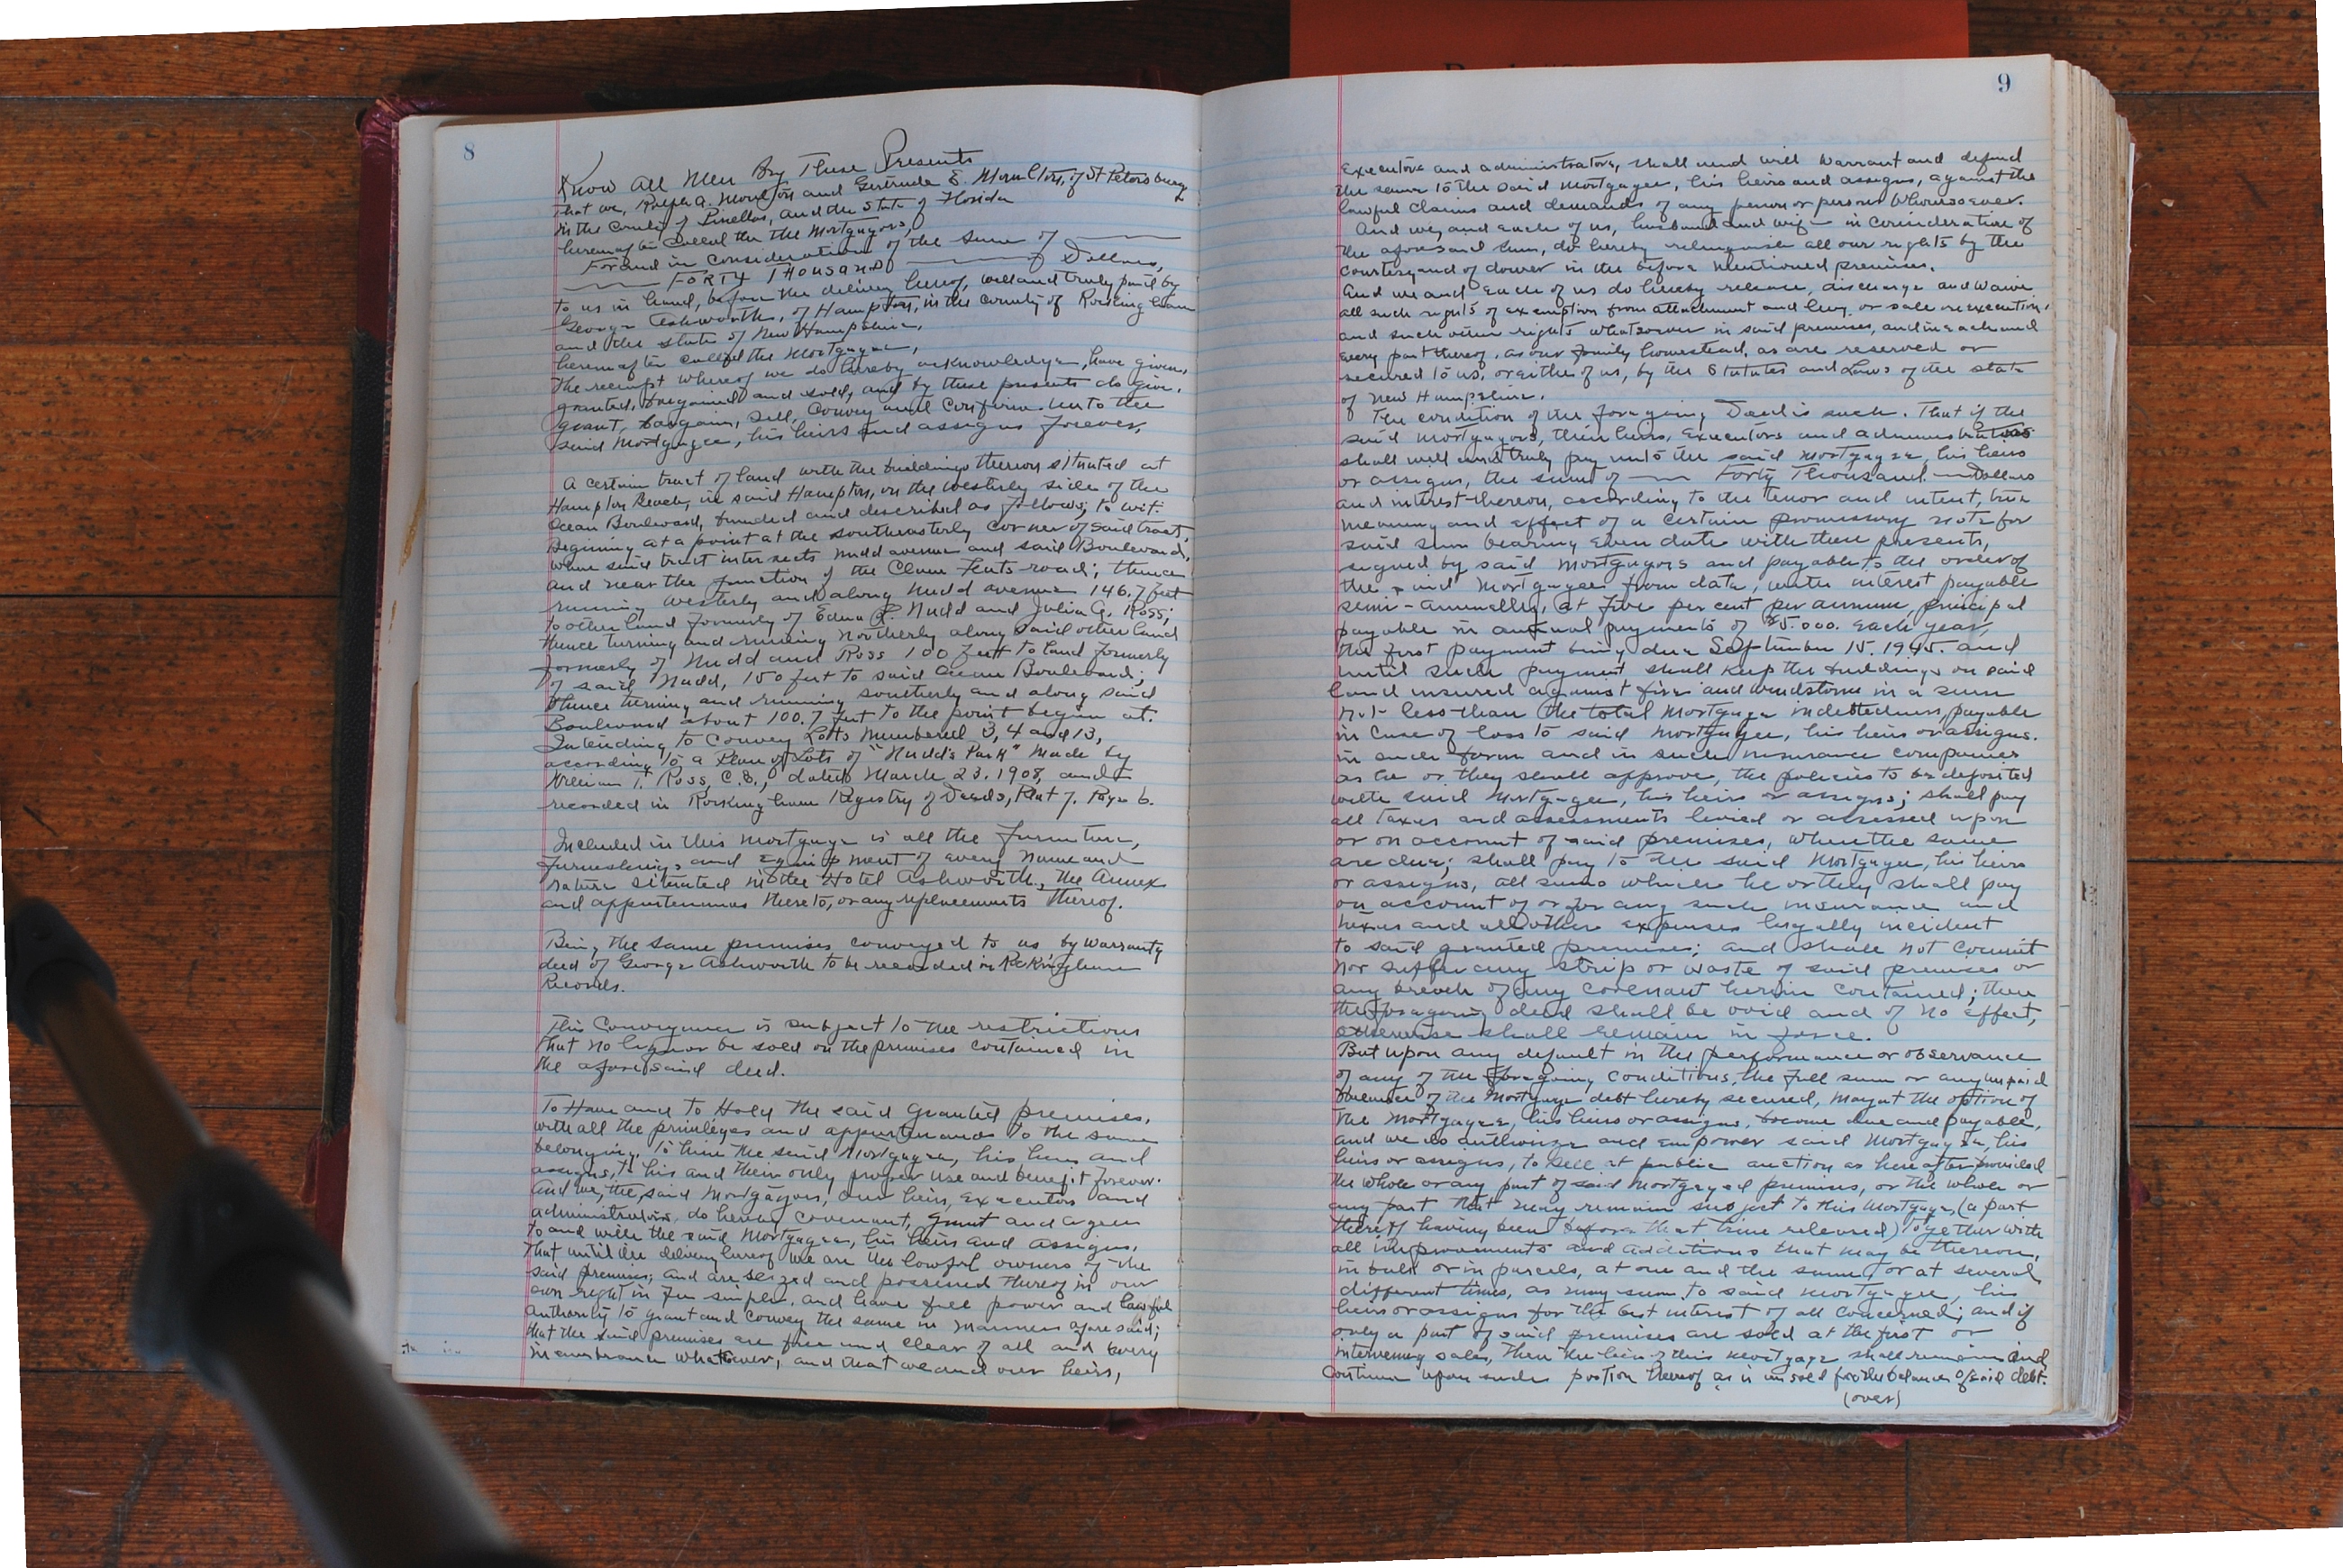 8
Know All Men By These Presents
That we, Ralph A. Moulton and Gertrude E. Moulton, of St Petersburg
in the County of Pinellas, and the State of Florida
hereinafter called the the Mortgagors,
For and in consideration of the sum of
FORTY THOUSAND Dollars,
to us in hand, before the delivery hereof, well and truly paid by
George Ashworth, of Hampton, in the County of Rockingham
and the state of New Hampshire,
hereinafter called the Mortgagee,
the receipt whereof we do hereby acknowledge, have given,
granted, bargained and sold, and by these presents do give,
grant, bargain, sell, convey and confirm unto the
said Mortgagee, his heirs and assigns forever,
A certain tract of land with the buildings thereon situated at
Hampton Beach, in said Hampton, on the westerly side of the
Ocean Boulevard, bounded and described as follows, to wit:
Begining at a point at the southeasterly corner of said tract,
where said tract intersects Nudd avenue and said Boulevard,
and near the junction of the Clam Flats road; thence
running westerly and along Nudd avenue 146.7 feet
to other land formerly of Edna P. Nudd and Julia G. Ross;
thence turning and running northerly along said other land
formerly of Nudd and Ross 100 feet to land formerly
of said Nudd, 150 feet to said Ocean Boulevard;
thence turning and running southerly and along said
Boulevard about 100.7 feet to the point begun at.
Intending to convey Lots Numbered 3, 4 and 13,
according to a Plan of Lots of "Nudd's Park" made by
William T. Ross, C.E., dated March 23. 1908, and
recorded in Rockingham Registry of Deeds, Plat 7. Page 6.
Included in this mortgage is all the furniture,
furnishings and equipment of every name and
nature situated in the Hotel Ashworth, the Annex
and appurtenances thereto, or any replacements thereof.
Being the same premises conveyed to us by warranty
deed of George Ashworth to be recorded in Rockingham
Records.
This Conveyance is subject to the restrictions
that no liquor be sold on the premises contained in
the aforesaid deed.
To Have and to Hold the said granted premises,
with all the privileges and appurtenances to the same
belonging, to him the said Mortgagee, his heirs and
assigns, to his and their only proper use and benefit forever.
And we, the said Mortgagors, our heirs, executors and
administrators, do hereby covenant, grant and agree
to and with the said Mortgagee, his heirs and assigns,
that until the delivery hereof we are the lawful owners of the
said premises, and are seized and possessed thereof in our
own right in fee simple, and have full power and lawful
authority to grant and convey the same in manner aforesaid;
that the said premises are free and clear of all and every
incumbrance whatsoever, and that we and our heirs,
9
Executors and administrators, shall and will warrant and defend
the same to the said Mortgagee, his heirs and assigns, against the
lawful claims and demands of any person or persons whomsoever.
And we, and each of us, husband and wife in consideration of
the aforesaid sum, do hereby relinquish all our rights by the
courtesy and of dower in the before mentioned premises.
And we and each of us do hereby release, discharge and waive
all such rights of exemption from attachment and levy or sale on execution,
and such other rights whatsoever in said premises, and in each and
every part thereof, as our family homestead, as are reserved or
secured to us, or either of us, by the Statutes and Laws of the state
of New Hampshire.
The condition of the foregoing Deed is such. That if the
said mortgagors, their heirs, Executors and administrators
shall well and truly pay unto the said Mortgagee, his heirs
or assigns, the sum of Forty Thousand Dollars
and interest thereon, according to the tenor and intent, true
meaning and effect of a certain promissory note for
said sum bearing even date with these presents,
signed by said Mortgagors and payable to the order of
the said Mortgagee from date, with interest payable
semi-annually, at five per cent per annum, principal
payable in annual payments of $5.000. each year,
the first payment being due September 15. 1945. and
until such payment shall keep the buildings on said
land insured against fire and windstorm in a sum
not less than the total Mortgage indebtedness, payable
in case of loss to said Mortgagee, his heirs or assigns.
in such form and in such insurance companies
as he or they shall approve, the policies to be deposited
with said Mortgagee, his heirs or assigns; shall pay
all taxes and assessments levied or assessed upon
or on account of said premises, when the same
are due; shall pay to the said Mortgagee, his heirs
or assigns, all sums which he or they shall pay
on account of or for any such insurance and
taxes and all other expenses legally incident
to said granted premises; and shall not commit
nor suffer any strip or waste of said premises or
any breach of any covenant herein contained; then
the foregoing deed shall be void and of no effect,
otherwise shall remain in force.
But upon any default in the performance or observance
of any of the foregoing conditions, the full sum or any unpaid
balance of the Mortgage debt hereby secured, may at the option of
the Mortgagee, his heirs or assigns, become due and payable,
and we do authorize and empower said Mortgagee, his
heirs or assigns, to sell at public auction as hereafter provided
the whole or any part of said Mortgaged premises, or the whole or
any part that may remain subject to this Mortgage, (a part
thereof having been before that time released) together with
all improvements and additions that may be thereon,
in bulk or in parcels, at one and the same, or at several
different times, as may seem to said mortgagee, his
heirs or assigns for the best interest of all concerned; and if
only a part of said premises are sold at the first or
intervening sales, then the lien of this mortgage shall remain and
continue upon such portion thereof as is unsold for the balance of said debt.
(over)